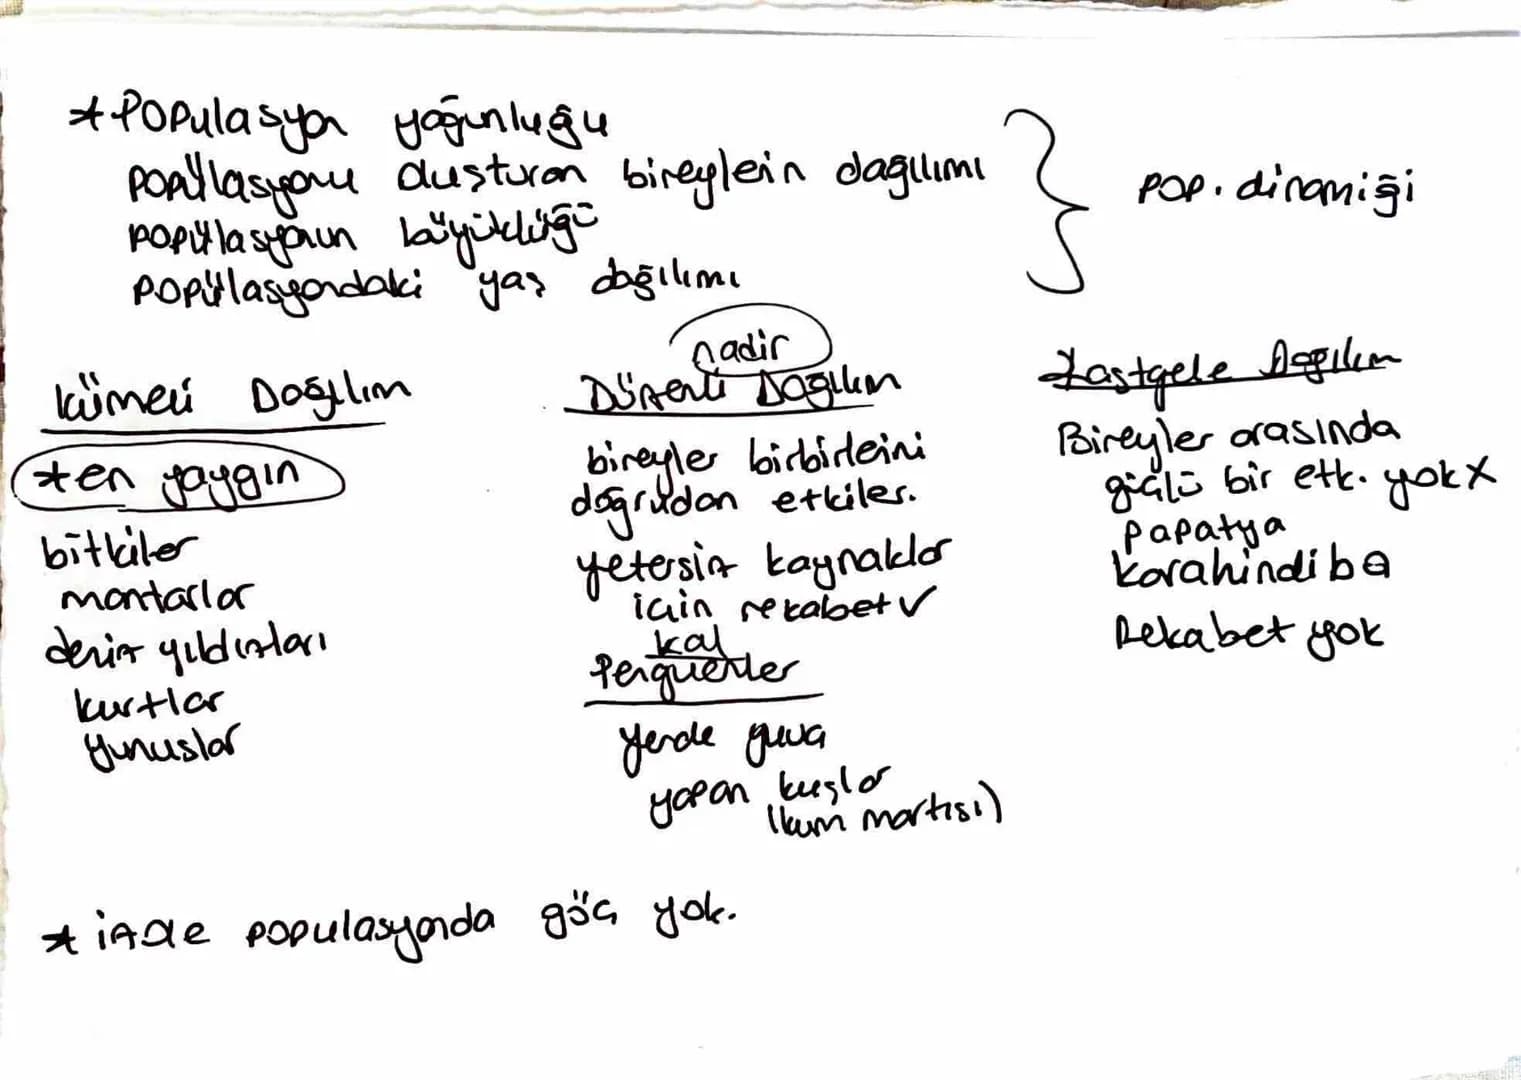 * Populasyon yoğunluğu
popülasyonu oluşturan bireylerin dağılımı
popülasyonun büyüklüğü
popülasyondaki yaş dağılımı
pop. dinamiği
Kümeli Dağılım
*en yaygın
bitkiler
mantarlar
deniz yıldızları
kurtlar
yunuslar
nadir
Düzenli Dağılım
bireyler birbirlerini
doğrudan etkiler.
yetersiz kaynaklar
için rekabet✓
kal
Penguenler
yerde yuva
yapan kuşlar
(kum martısı)
Rastgele Dağılım
Bireyler arasında
güçlü bir etk. yok X
papatya
karahindiba
Rekabet yok
* izole populasyonda göç yok.